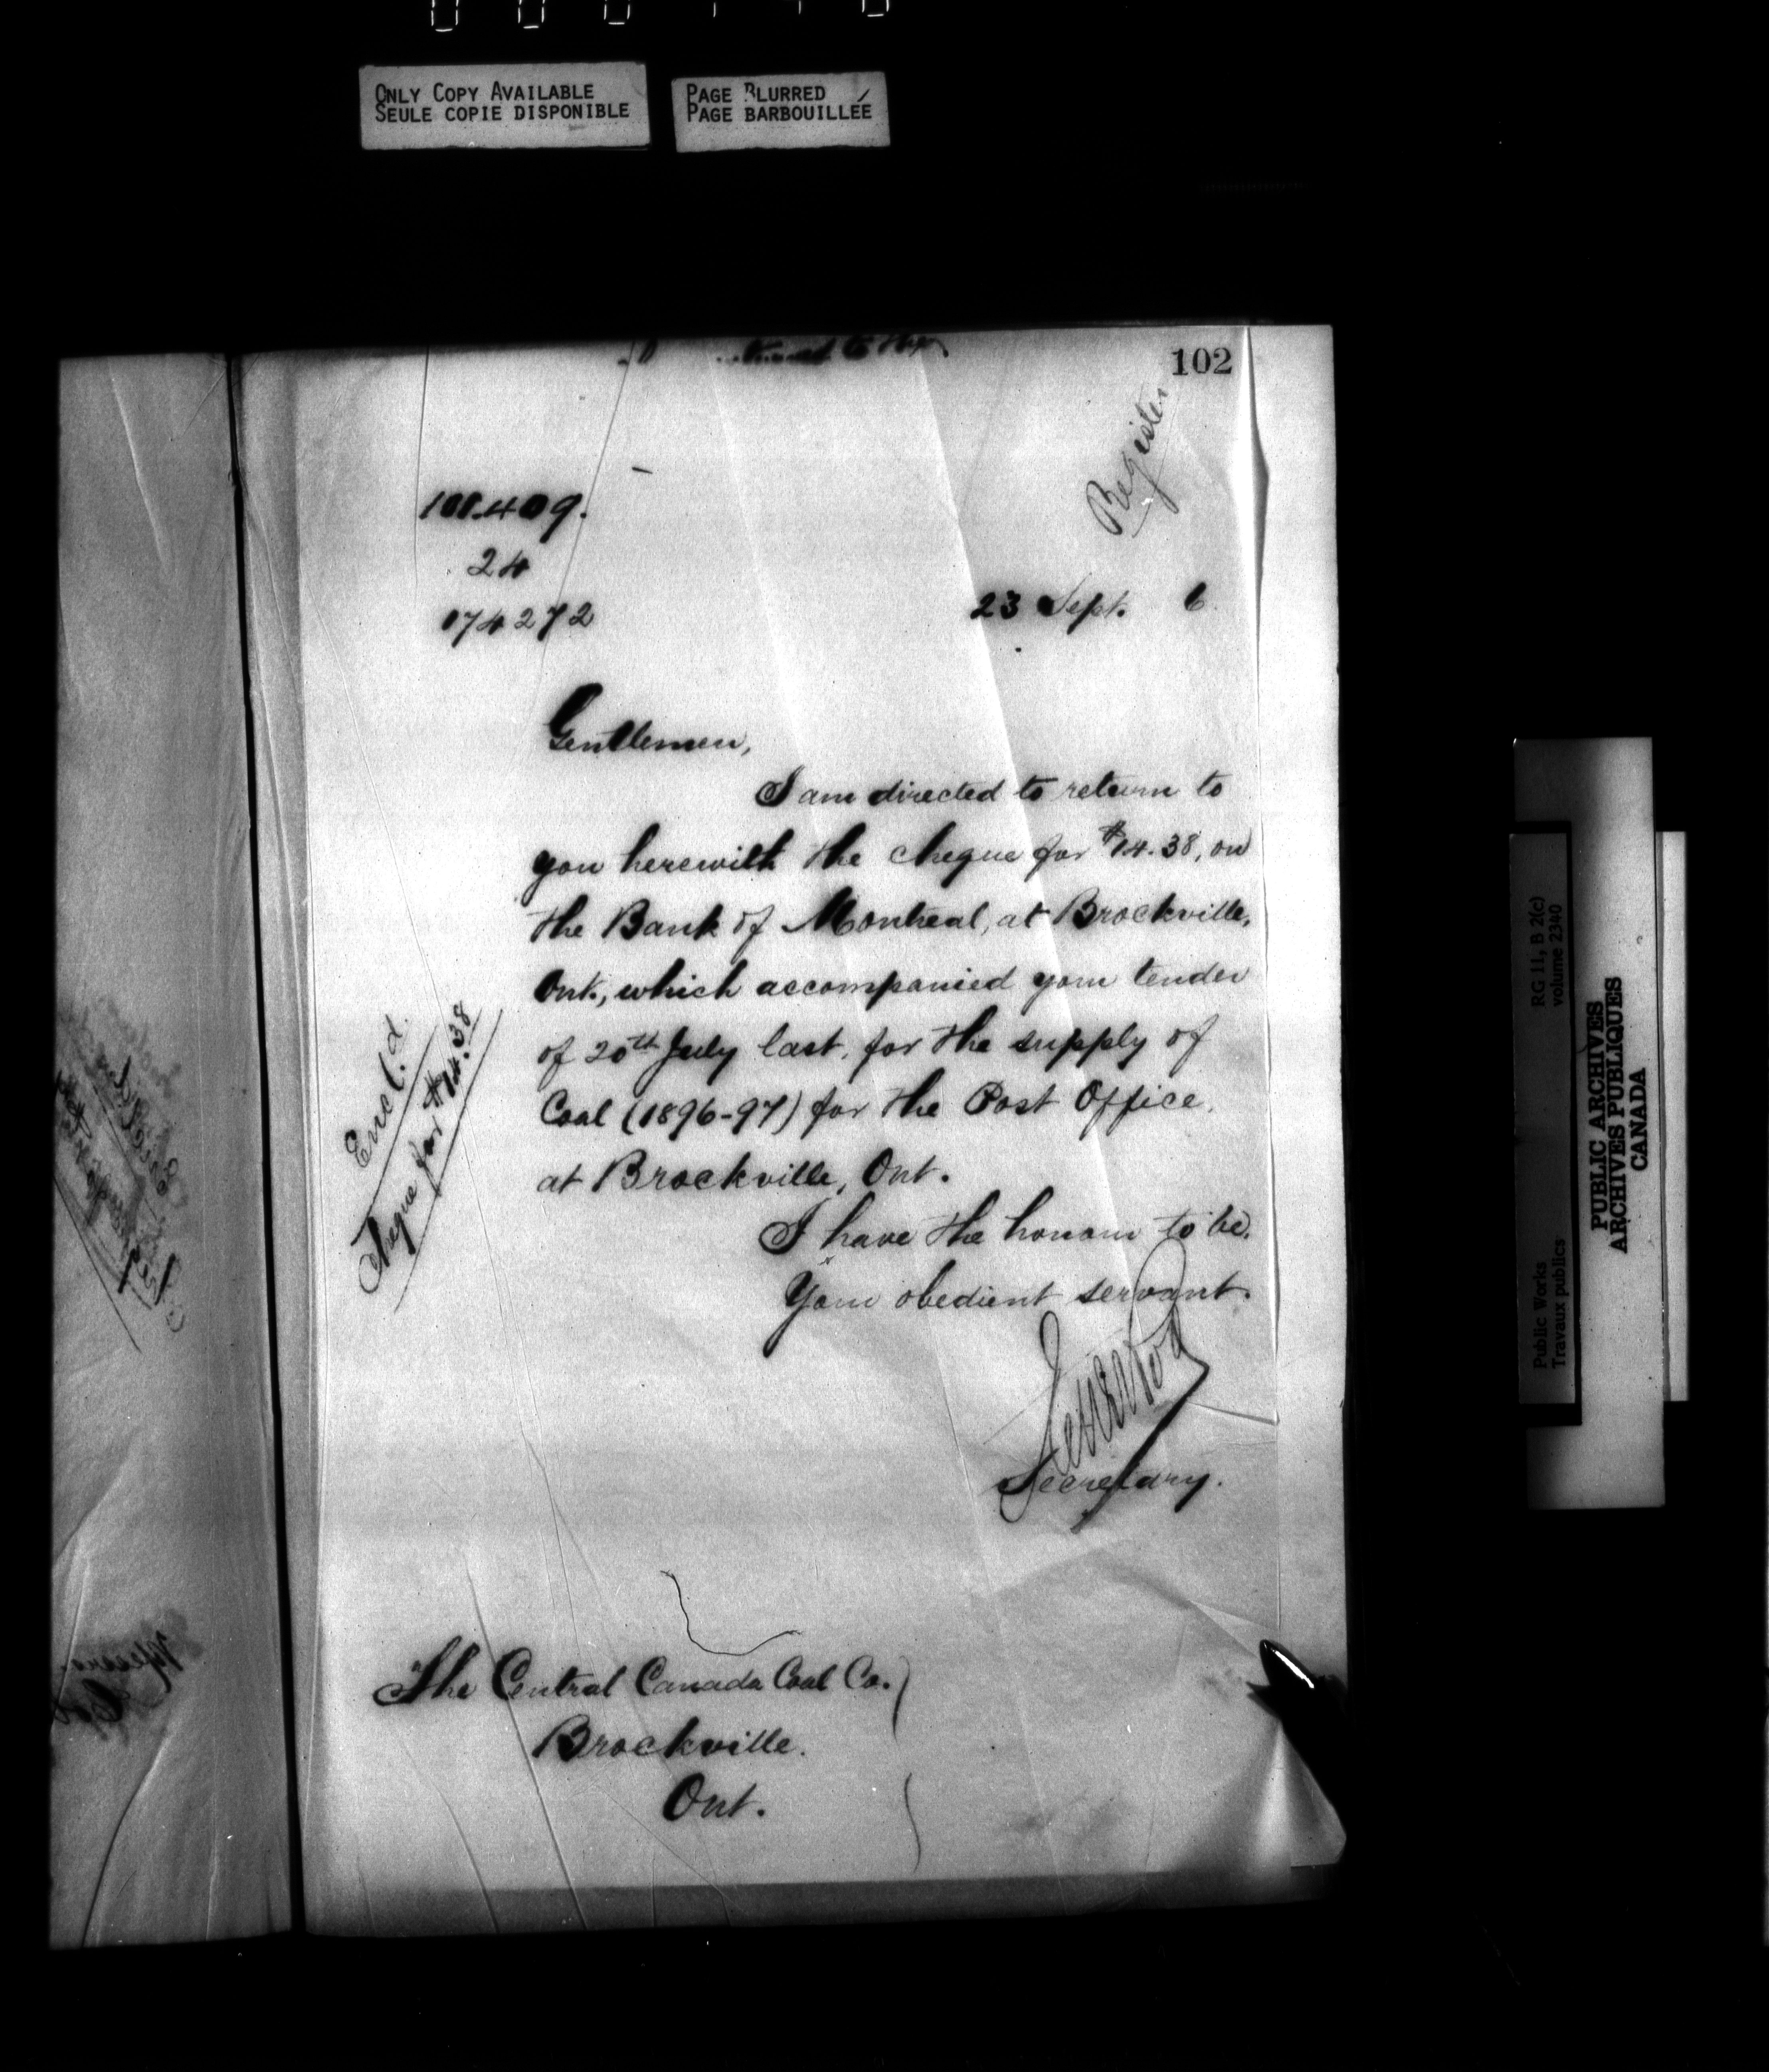 ONLY COPY AVAILABLE
SEULE COPIE DISPONIBLE
PAGE BLURRED
PAGE BARBOUILLÉE
102
Register
24
174272
23 Sept. 6
Gentlemen,
I am directed to return to
you herewith the cheque for $14.38, on
the Bank of Montreal, at Brockville,
Ont., which accompanied your tender
of 20th July last, for the supply of
Coal (1896-97) for the Post Office,
at Brockville, Ont.
I have the honour to be,
Your obedient servant.
Secretary.
Encl.d.
Cheque for $14.38
The Central Canada Coal Co.
Brockville.
Ont.
Public Works
Travaux publics
RG 11, B 2(c)
volume 2340
PUBLIC ARCHIVES
ARCHIVES PUBLIQUES
CANADA